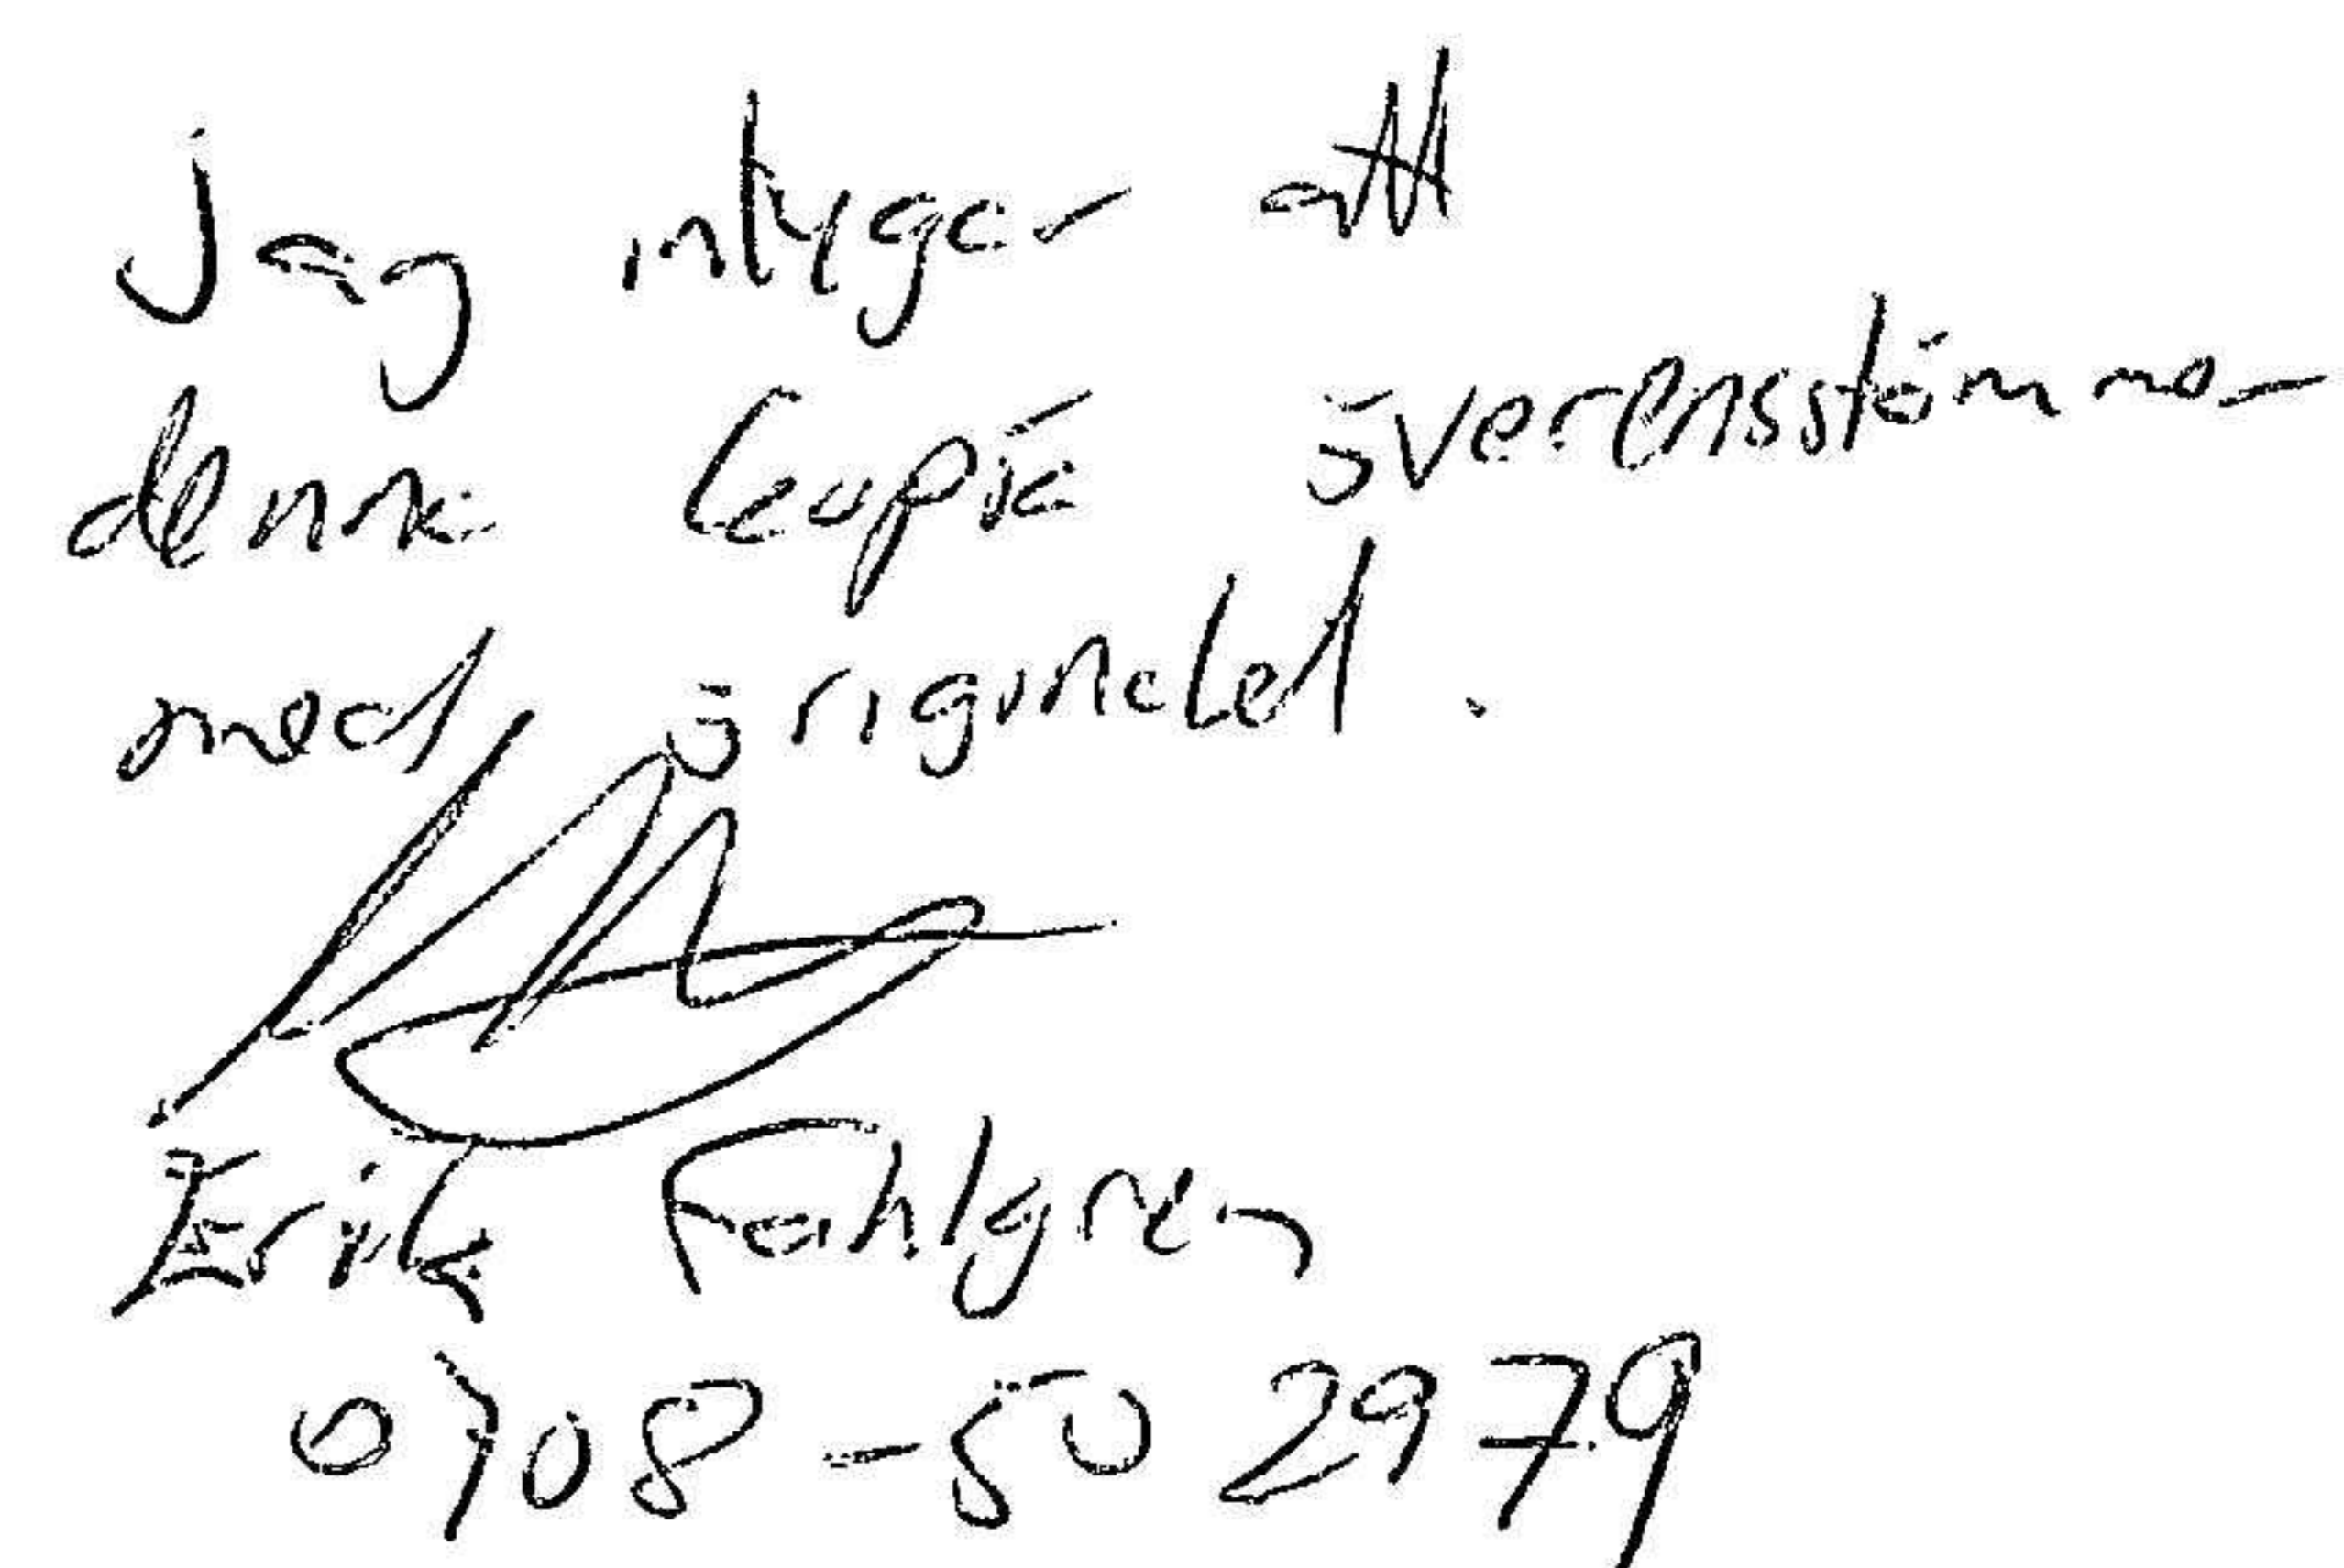 Jag intygar att
denna kopia överensstämmer
med originalet.
Erik Fahlgren
0708-50 29 79